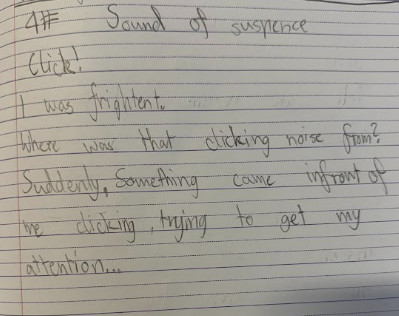 4# Sound of suspence
Click!
I was frightent.
Where was that clicking noise from?
Suddenly, Something came infront of
me clicking, trying to get my
attention...